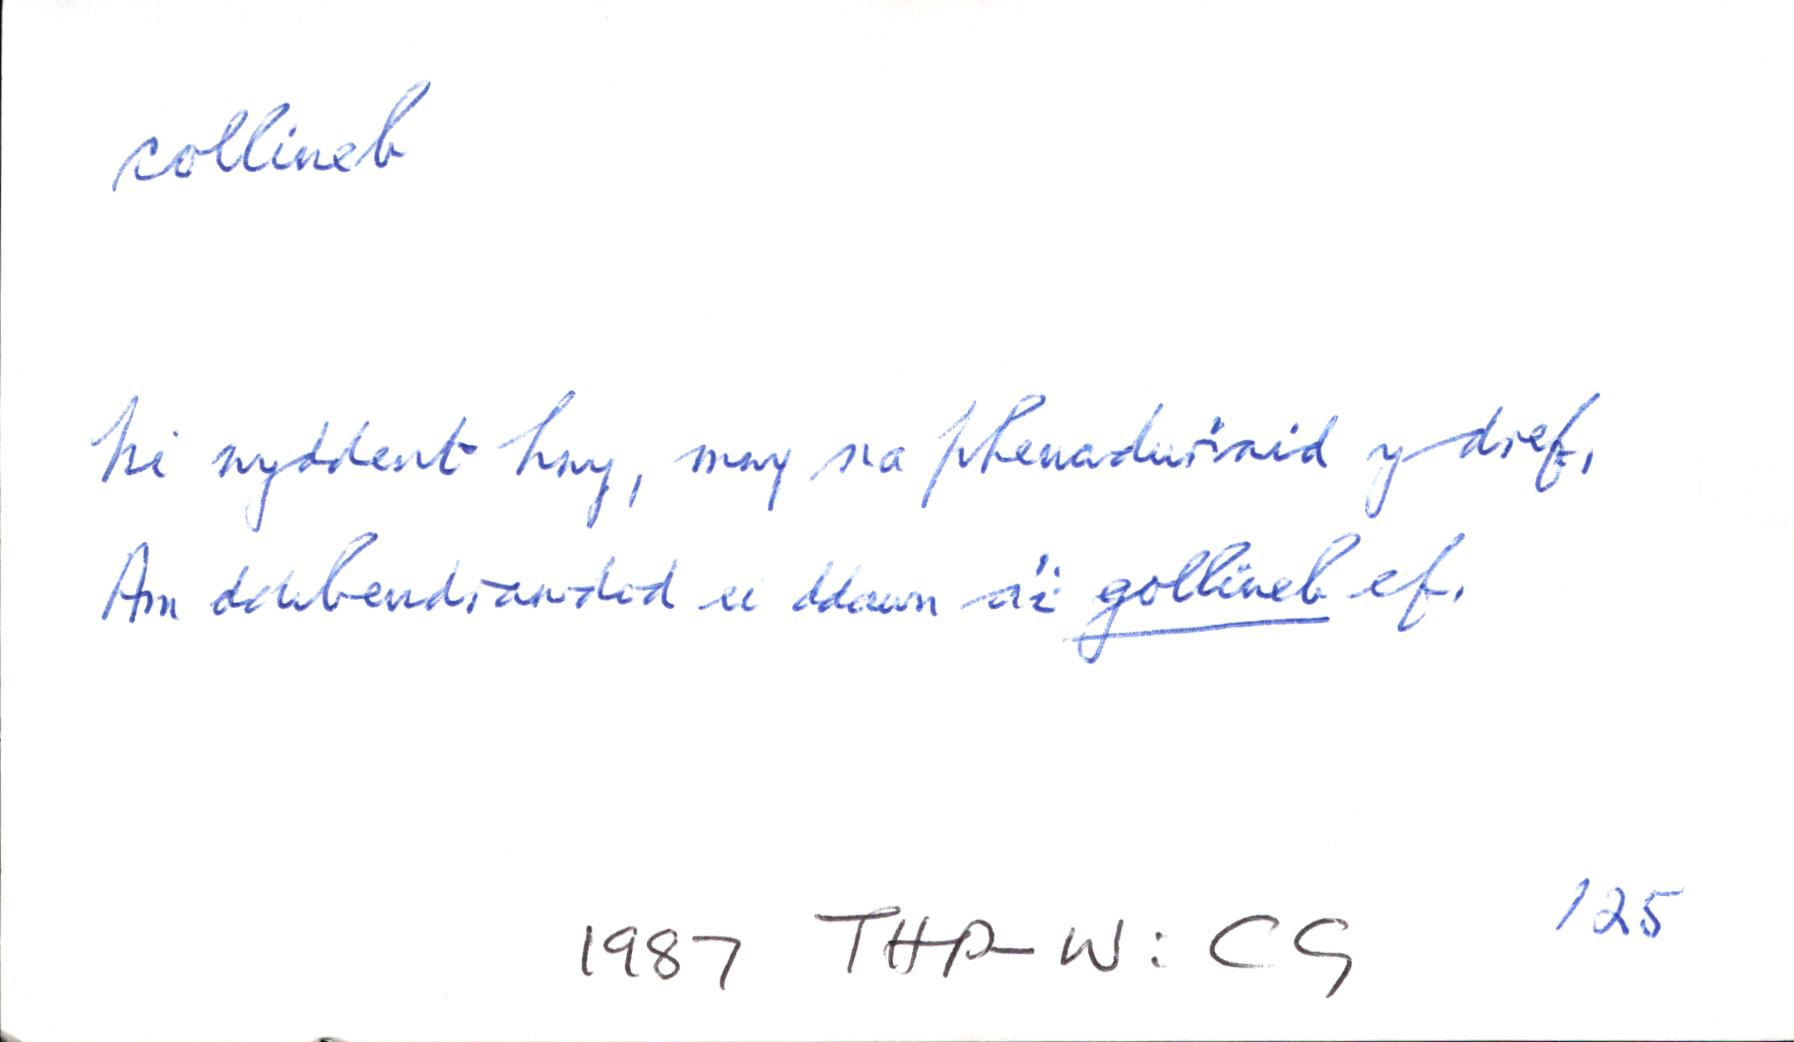 collineb
Ni wyddent hwy, mwy na phenaduriaid y dref,
Am ddibendrawdod ei ddawn a'i gollineb ef.
125
1987 THP-W: CG